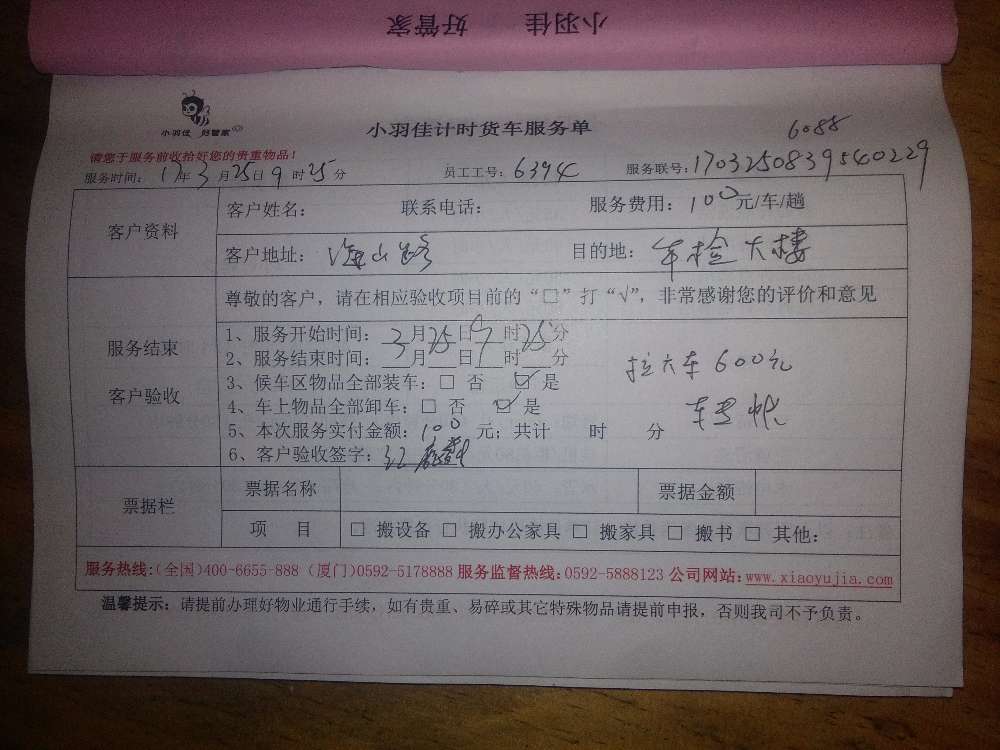 小羽佳 好管家
小羽佳 好管家
小羽佳计时货车服务单
6088
请您于服务前收拾好您的贵重物品！
服务时间：17年3月25日9时25分 员工工号：6394 服务联号：1703250839540229
客户资料
客户姓名： 联系电话： 服务费用：100元/车/趟
客户地址：海山路 目的地：年检大楼
服务结束
客户验收
尊敬的客户，请在相应验收项目前的“□”打“√”，非常感谢您的评价和意见
1、服务开始时间：3月25日9时25分
2、服务结束时间：3月 日9时 分
3、候车区物品全部装车：□ 否 ☑ 是
4、车上物品全部卸车：□ 否 ☑ 是
5、本次服务实付金额：100元；共计 时 分
6、客户验收签字：
拉大车600元
票据栏
票据名称 票据金额
项 目 □ 搬设备 □ 搬办公家具 □ 搬家具 □ 搬书 □ 其他：
服务热线:(全国)400-6655-888 (厦门)0592-5178888 服务监督热线:0592-5888123 公司网站:www.xiaoyujia.com
温馨提示：请提前办理好物业通行手续，如有贵重、易碎或其它特殊物品请提前申报，否则我司不予负责。